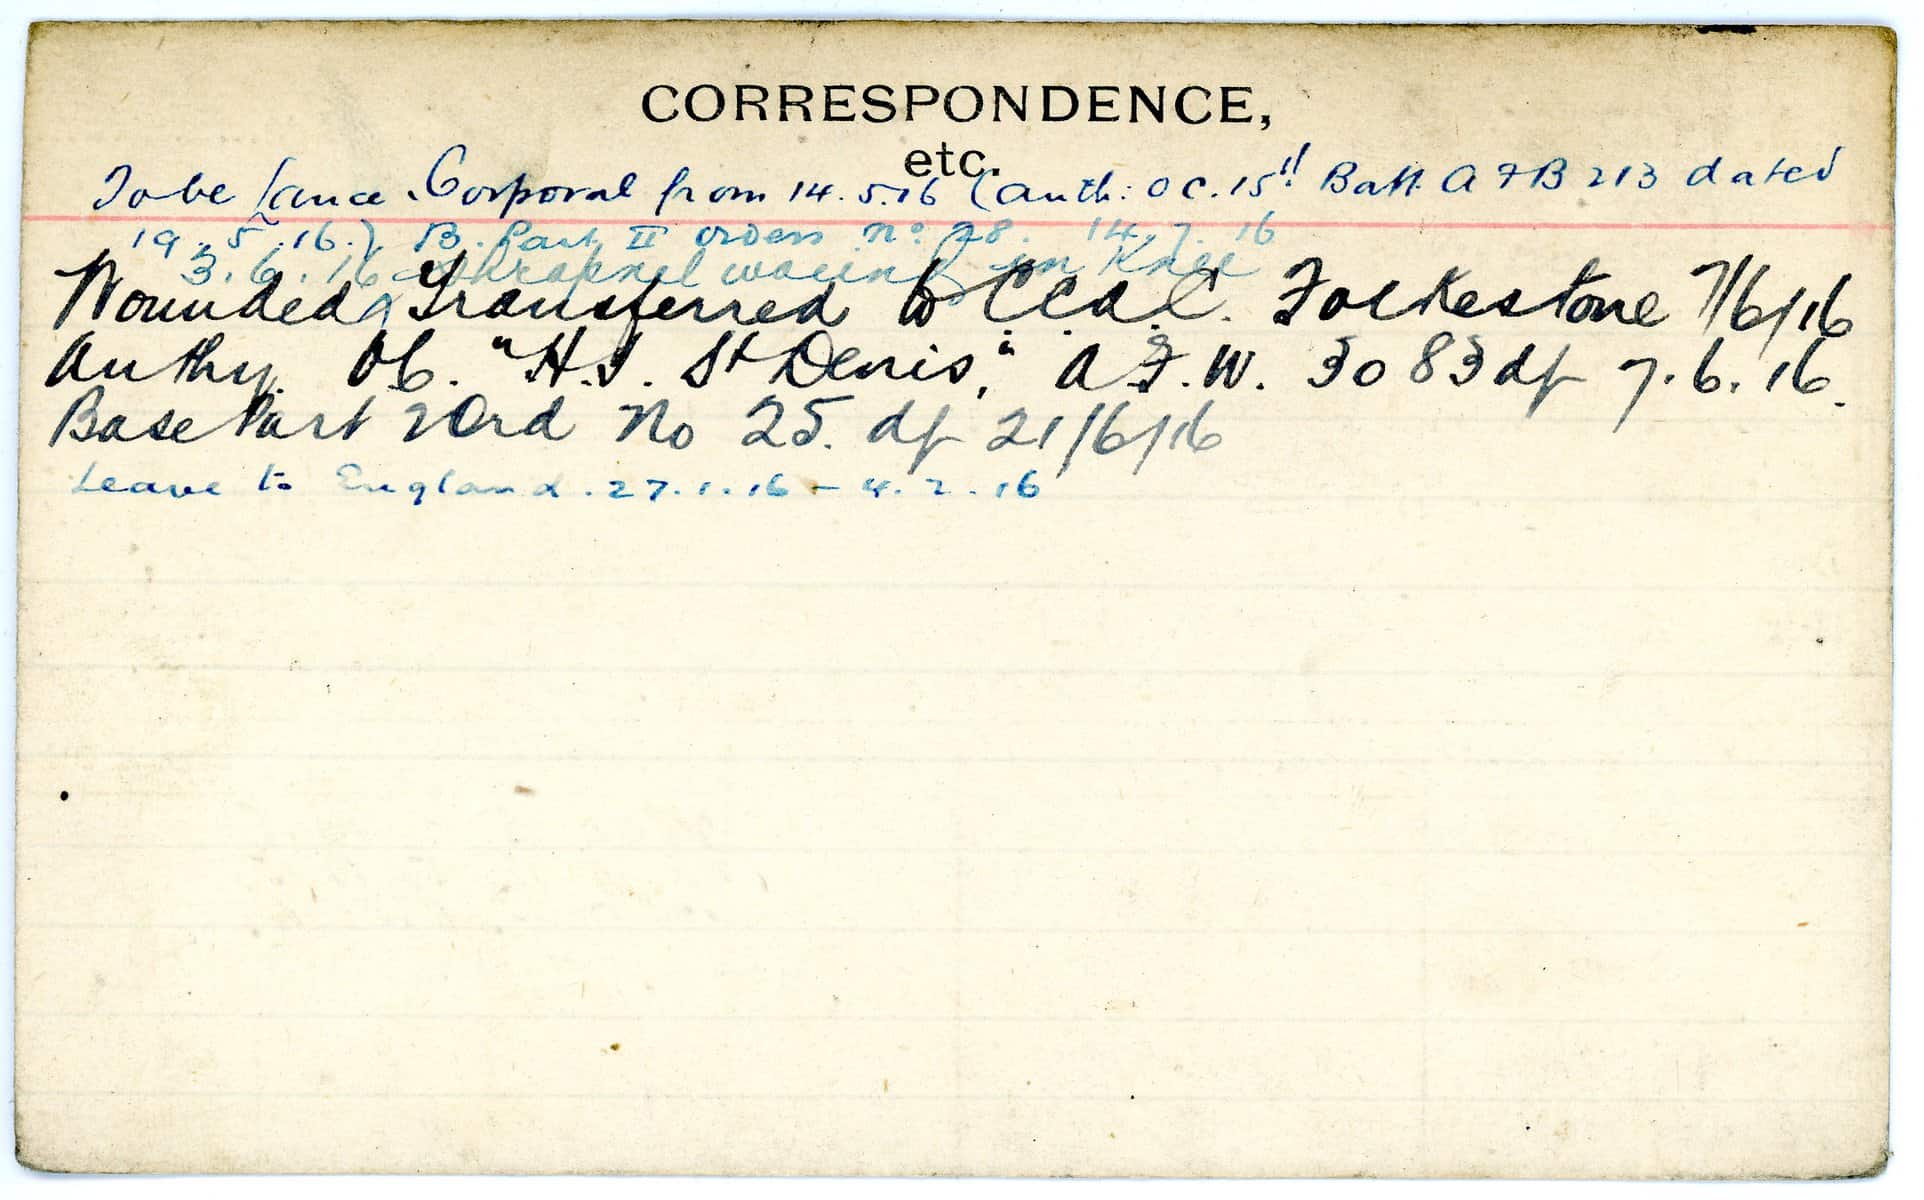 CORRESPONDENCE,
etc.
To be Lance Corporal from 14.5.16 (Auth: OC. 15" Batt. A F B 213 dated
19.5.16.) B. Part II orders No 28. 14.7.16
3.6.16 Shrapnel wound in Knee
Wounded Transferred to C.C.A.C. Folkestone 7/6/16
Authy. OC. "H.S. St Denis," A.F.W. 3083 df 7.6.16.
Base Part 2 Ord No 25. df 21/6/16
Leave to England. 27.1.16 - 4.2.16